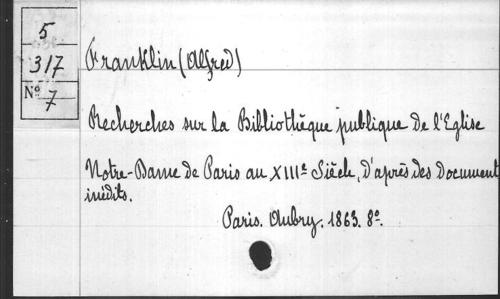 5
317
Nº 7
Franklin (Alfred)
Recherches sur la Bibliothèque publique de l'Eglise
Notre-Dame de Paris au XIIIe Siècle, d'après des document
inédits.
Paris. Aubry. 1863. 8º.